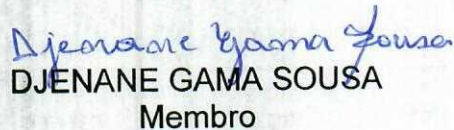 Djenane Gama Sousa
DJENANE GAMA SOUSA
Membro